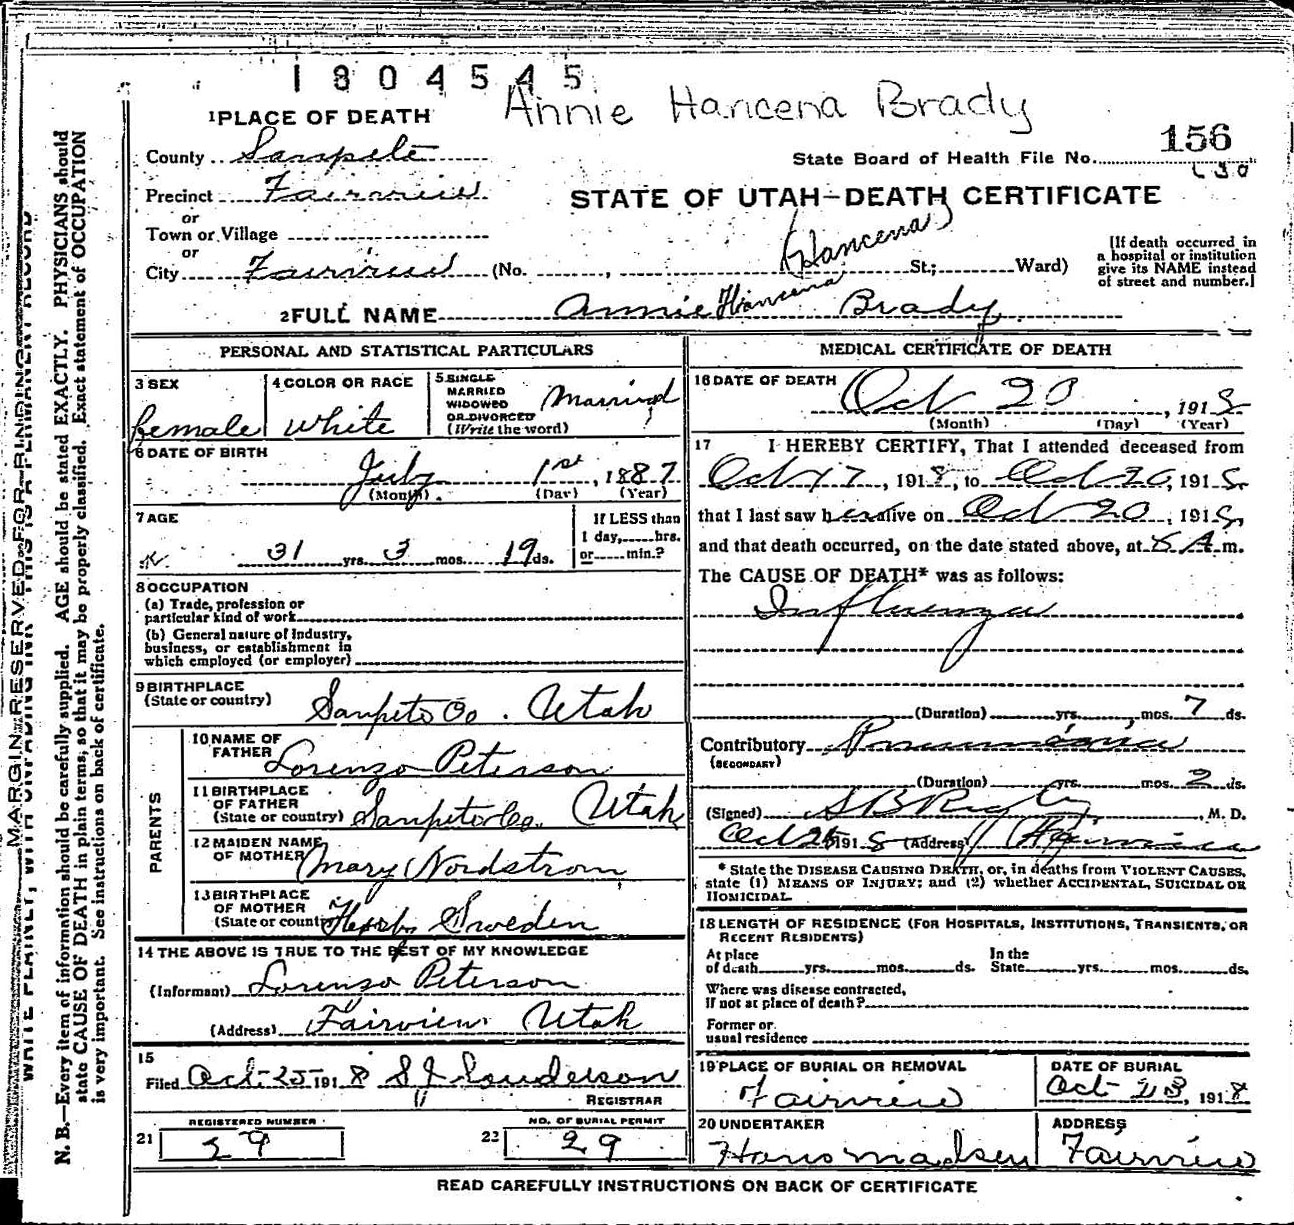 1804545
Annie Hancena Brady
1 PLACE OF DEATH
156
County Sanpete
State Board of Health File No.
Precinct Fairview
STATE OF UTAH—DEATH CERTIFICATE
or
Town or Village
(Hancena)
or
City Fairview (No. , St.; Ward)
[If death occurred in
a hospital or institution
give its NAME instead
of street and number.]
2 FULL NAME Annie Hancena Brady
PERSONAL AND STATISTICAL PARTICULARS
3 SEX
female
4 COLOR OR RACE
White
5 SINGLE
MARRIED
WIDOWED
OR DIVORCED
(Write the word)
Married
6 DATE OF BIRTH
July 1st, 1887
(Month) (Day) (Year)
7 AGE
31 yrs. 3 mos. 19 ds.
If LESS than
1 day, hrs.
or min.?
8 OCCUPATION
(a) Trade, profession or
particular kind of work
(b) General nature of Industry,
business, or establishment in
which employed (or employer)
9 BIRTHPLACE
(State or country)
Sanpete Co. Utah
PARENTS
10 NAME OF
FATHER
Lorenzo Peterson
11 BIRTHPLACE
OF FATHER
(State or country) Sanpete Co. Utah
12 MAIDEN NAME
OF MOTHER
Mary Nordstrom
13 BIRTHPLACE
OF MOTHER
(State or country) Sweden
14 THE ABOVE IS TRUE TO THE BEST OF MY KNOWLEDGE
(Informant) Lorenzo Peterson
(Address) Fairview Utah
15
Filed Oct 25 1918
REGISTRAR
REGISTERED NUMBER
21 29
NO. OF BURIAL PERMIT
22 29
MEDICAL CERTIFICATE OF DEATH
16 DATE OF DEATH
Oct 20, 1918
(Month) (Day) (Year)
17 I HEREBY CERTIFY, That I attended deceased from
Oct 17, 1918, to Oct 20, 1918
that I last saw her alive on Oct 20, 1918,
and that death occurred, on the date stated above, at A.m.
The CAUSE OF DEATH* was as follows:
Influenza
(Duration) yrs. mos. 7 ds.
Contributory Pneumonia
(SECONDARY)
(Duration) yrs. mos. 2 ds.
(Signed) , M. D.
Oct 1918 (Address) Fairview
* State the DISEASE CAUSING DEATH, or, in deaths from VIOLENT CAUSES,
state (1) MEANS OF INJURY; and (2) whether ACCIDENTAL, SUICIDAL OR
HOMICIDAL.
18 LENGTH OF RESIDENCE (FOR HOSPITALS, INSTITUTIONS, TRANSIENTS, OR
RECENT RESIDENTS)
At place
of death yrs. mos. ds.
In the
State yrs. mos. ds.
Where was disease contracted,
if not at place of death?
Former or
usual residence
19 PLACE OF BURIAL OR REMOVAL
Fairview
DATE OF BURIAL
Oct 23, 1918
20 UNDERTAKER
Hans Madsen
ADDRESS
Fairview
READ CAREFULLY INSTRUCTIONS ON BACK OF CERTIFICATE
MARGIN RESERVED FOR BINDING
WRITE PLAINLY, WITH UNFADING INK—THIS IS A PERMANENT RECORD
N. B.—Every item of information should be carefully supplied. AGE should be stated EXACTLY. PHYSICIANS should
state CAUSE OF DEATH in plain terms, so that it may be properly classified. Exact statement of OCCUPATION
is very important. See instructions on back of certificate.